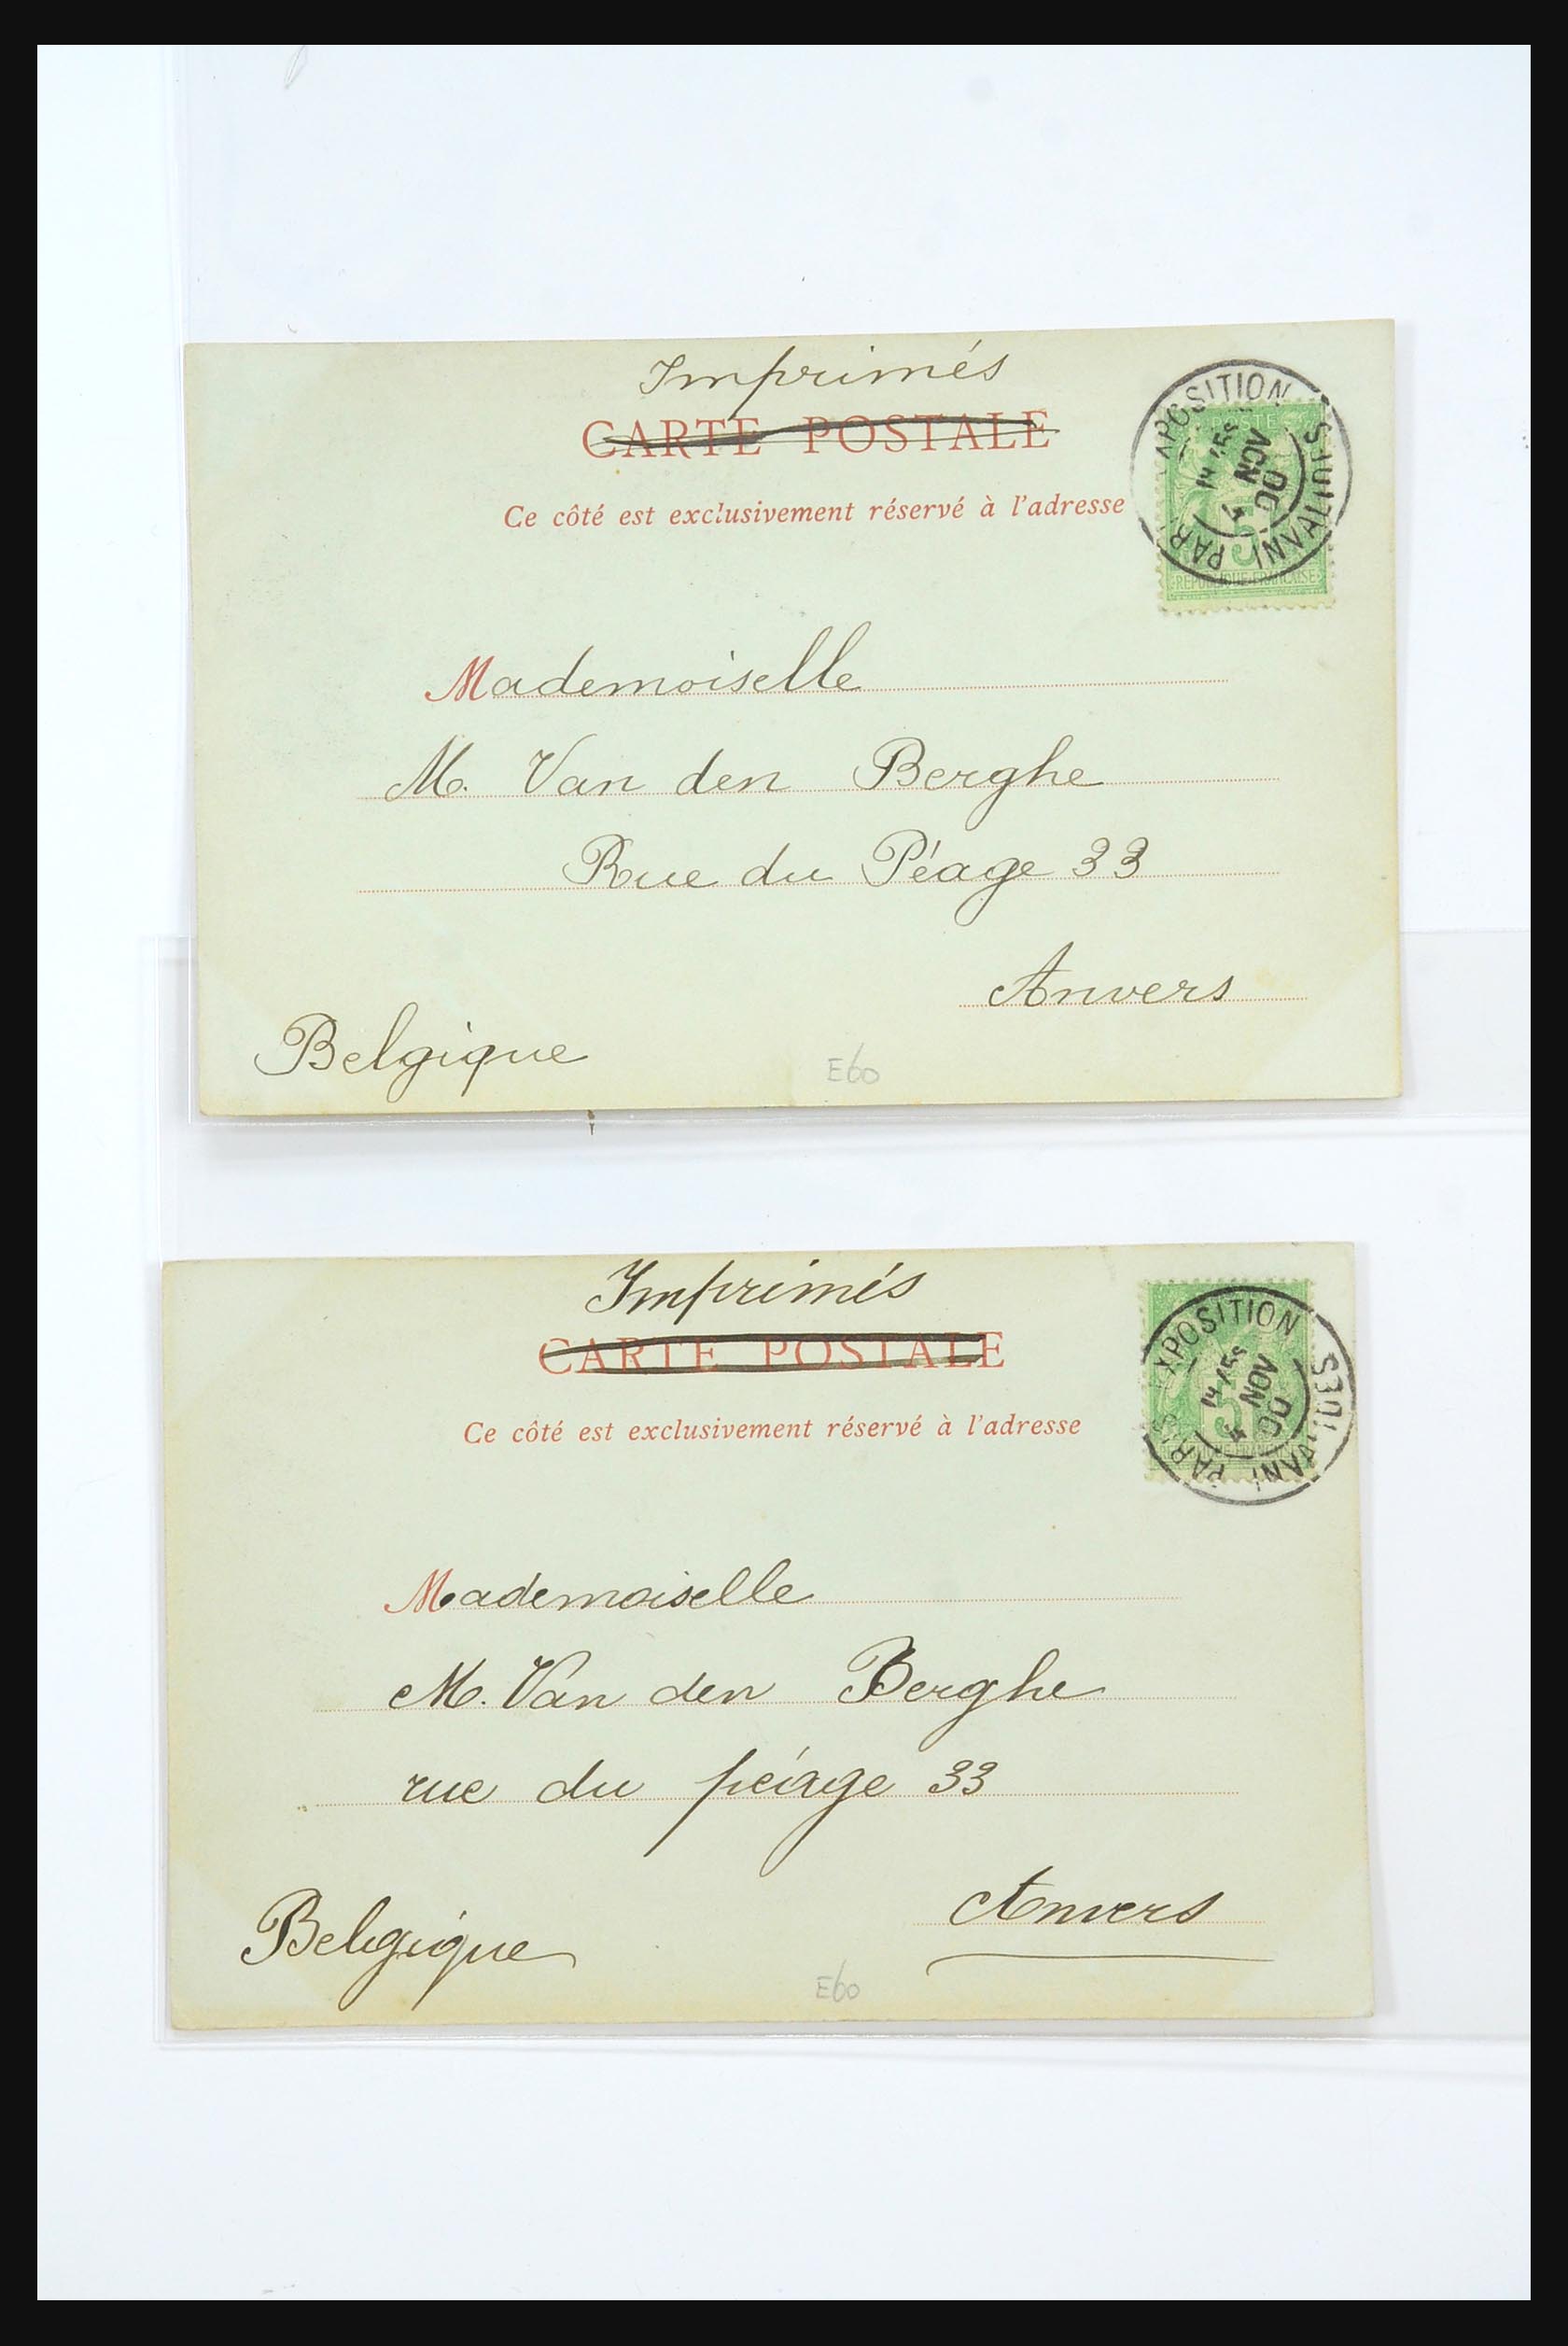 Imprimés
CARTE POSTALE
Ce côté est exclusivement réservé à l'adresse
XPOSITION
INVALIDES
PAR
NOV
00
POSTE
5
REPUBLIQUE FRANCAISE
Mademoiselle
M. Van den Berghe
Rue du Péage 33
Anvers
Belgique
E60
Imprimés
CARTE POSTALE
Ce côté est exclusivement réservé à l'adresse
XPOSITION
PARIS
NOV
00
5
Mademoiselle
M. Van den Berghe
rue du péage 33
Anvers
Belgique
E60